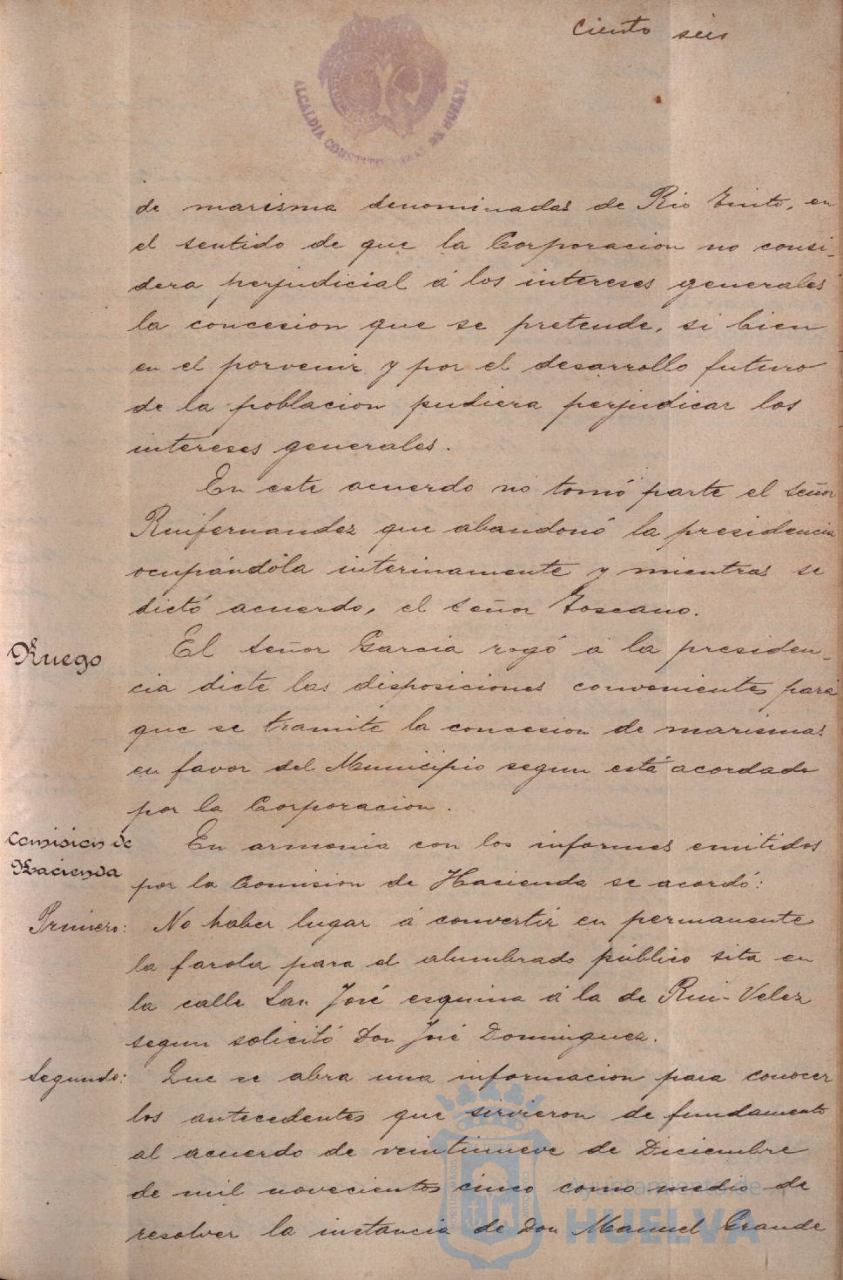 Ciento seis
ALCALDIA CONSTITUCIONAL DE HUELVA
de marisma denominadas de Rio Tinto, en
el sentido de que la Corporacion no consi-
dera perjudicial á los intereses generales
la concesion que se pretende, si bien
en el porvenir y por el desarrollo futuro
de la poblacion pudiera perjudicar los
intereses generales.
En este acuerdo no tomó parte el señor
Ruifernandez que abandonó la presidencia
ocupándola interinamente y mientras se
dictó acuerdo, el señor Toscano.
Ruego
El señor Garcia rogó á la presiden-
cia dicte las disposiciones convenientes para
que se tramite la concesion de marismas
en favor del Municipio segun está acordado
por la Corporacion.
Comision de
Hacienda
En armonia con los informes emitidos
por la Comision de Hacienda se acordó:
Primero: No haber lugar á convertir en permanente
la farola para el alumbrado público sita en
la calle San José esquina á la de Rui-Velez
segun solicitó Don José Dominguez.
Segundo: Que se abra una informacion para conocer
los antecedentes que sirvieron de fundamento
al acuerdo de veintinueve de Diciembre
de mil novecientos cinco como medio de
resolver la instancia de Don Manuel Grande
Ayuntamiento de
HUELVA